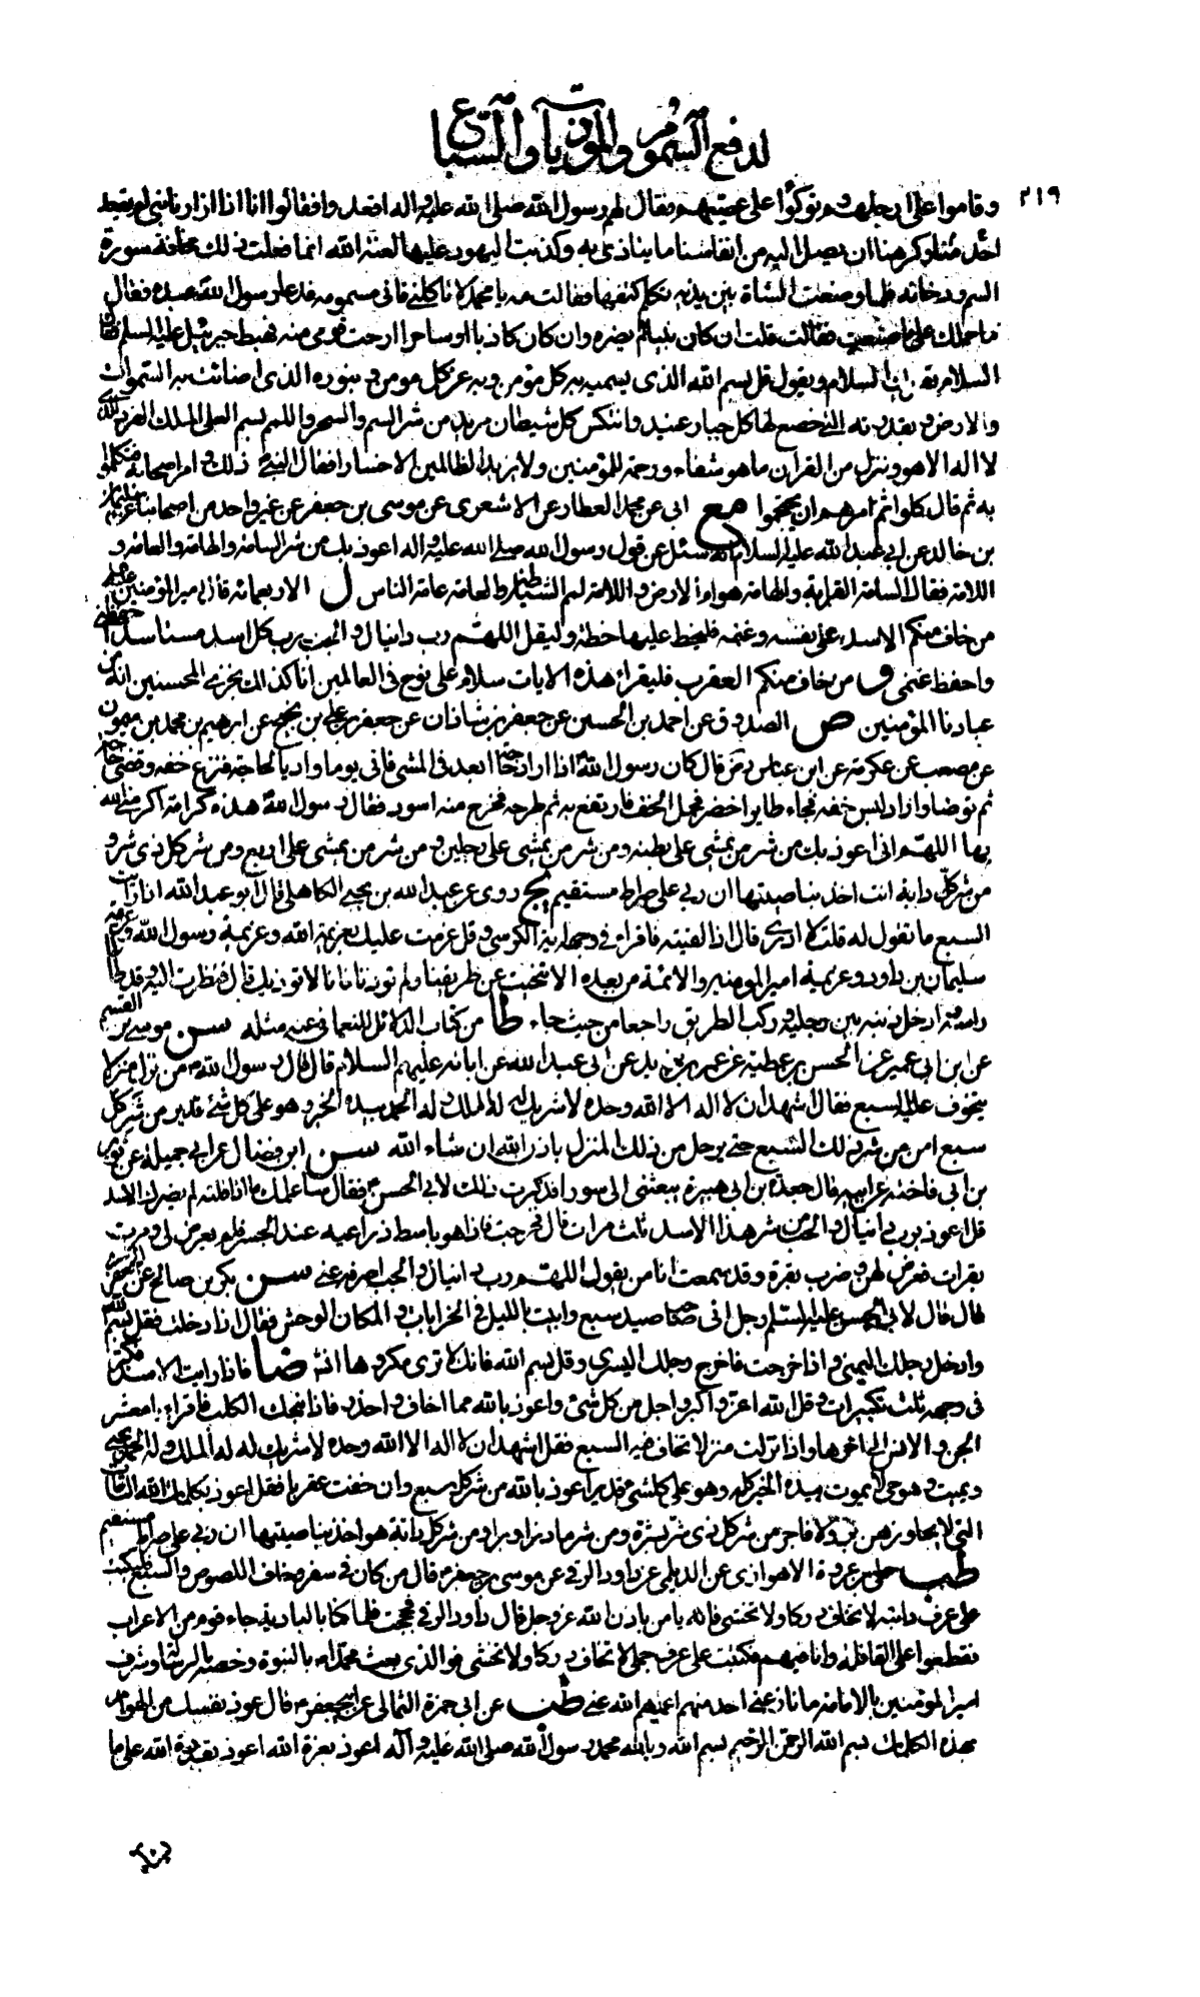 لدفع السموم والموذيات والسباع
٢١٩
وقاموا على ارجلهم وتوكؤا على عصيهم فقال لهم رسول الله صلى الله عليه واله اقعدوا فقالوا انا اذا زارنا نبي لم يقعد
احد منا وكرهنا ان يصل اليه من انفاسنا ما يتاذى به وكذبت اليهود عليها لعنة الله انما فعلت ذلك مخافة سورة
السم ودخانه فلما وضعت الشاة بين يديه تكلم كتفها فقالت مه يا محمد لا تاكلني فاني مسمومه فدعا رسول الله عبده فقال
ما حملك على ما صنعت فقالت قلت ان كان نبيا لم يضره وان كان كاذبا او ساحرا ارحت قومي منه فهبط جبرئيل عليه السلم فقال
السلام يقرئك السلام ويقول قل بسم الله الذى يسميه به كل مؤمن وبه عز كل مومن وبنوره الذى اضائت به السموات
والارض وبقدرته التي خضع لها كل جبار عنيد وانتكس كل شيطان مريد من شر السم والسحر واللمم بسم العلى الملك الفرد الذي
لا اله الا هو وننزل من القران ما هو شفاء ورحمة للمؤمنين ولا يزيد الظالمين الا خسارا فقال النبي ذلك وامر اصحابه فتكلموا
به ثم قال كلوا ثم امرهم ان يحتجموا مع ابى عن محمد العطار عن الاشعرى عن موسى بن جعفر عن غير واحد من اصحابنا عن سليمان
بن خالد عن ابي عبد الله عليه السلام انه سئل عن قول رسول الله صلى الله عليه واله اعوذ بك من شر السامة والهامة والعامة و
اللامة فقال السامة القرابة والهامة هوام الارض واللامة لمم الشياطين والعامة عامة الناس ل الاربعمائة قال امير المؤمنين عليه
من خاف منكم الاسد على نفسه وغنمه فليخط عليها خطة وليقل اللهم رب دانيال والجب رب كل اسد مستاسد احفظني
واحفظ غنمى و من خاف منكم العقرب فليقرا هذه الايات سلام على نوح فى العالمين انا كذلك نجزي المحسنين انه من
عبادنا المؤمنين ص الصدوق عن احمد بن الحسين عن جعفر بن شاذان عن جعفر بن علي بن نجيح عن ابرهيم بن محمد بن ميمون
عن مصعب عن عكرمة عن ابن عباس قال كان رسول الله اذا اراد حاجة ابعد فى المشى فاتى يوما واديا لحاجة فنزع خفه وقضى حاجته
ثم توضا واراد لبس خفه فجاء طاير اخضر فحمل الخف فارتفع به ثم طرحه فخرج منه اسود فقال رسول الله هذه كرامة اكرمني الله
بها اللهم انى اعوذ بك من شر من يمشى على بطنه ومن شر من يمشى على رجلين ومن شر من يمشى على اربع ومن شر كل ذى شر و
من شر كل دابة انت اخذ بناصيتها ان ربي على صراط مستقيم يج روى عن عبد الله بن يحيى الكاهلى قال قال ابو عبد الله اذا رايت
السبع ما تقول له قلت لا ادرى قال اذا لقيته فاقراء فى وجهه اية الكرسى وقل عزمت عليك بعزيمة الله وعزيمة رسول الله وعزيمة
سليمان بن داود وعزيمة امير المومنين والائمة من بعده الا تنحيت عن طريقنا ولم توذنا فانا لا توذيك قال فنظرت اليه قد طاطا
راسه وادخل ذنبه بين رجليه وركب الطريق راجعا من حيث جاء طا من كتاب الدلائل للنعمانى عنه مثله سن موسى بن القسم
عن ابن ابى عمير عن الحسن بن عطية عن عمر بن يزيد عن ابى عبد الله عن ابائه عليهم السلام قال قال رسول الله من نزل منزلا
يتخوف عليه السبع فقال اشهد ان لا اله الا الله وحده لا شريك له له الملك وله الحمد بيده الخير وهو على كل شئ قدير من شر كل
سبع امن من شر ذلك السبع حتى يرحل من ذلك المنزل باذن الله ان شاء الله سن ابن فضال عن ابي جميلة عن ثوير
بن ابى فاختة عن ابيه قال جعدة بن ابى هبيرة بعثنى الى سورا فذكرت ذلك لابي الحسن فقال ساعلمك ما اذا قلته لم يضرك الاسد
قل اعوذ برب دانيال والجب من شر هذا الاسد ثلث مرات قال فخرجت فاذا هو باسط ذراعيه عند الجسر فلم يعرض لى ومرت
بقرات فعرض لهن وضرب بقرة وقد سمعت انا من يقول اللهم رب دانيال والجب اصرفه عني سن بكر بن صالح عن الجعفرى
قال قال لابي الحسن عليه السلم رجل انى صاحب صيد سبع وابيت بالليل فى الخرابات والمكان الوحش فقال اذا دخلت فقل بسم الله
وادخل رجلك اليمنى واذا خرجت فاخرج رجلك اليسرى وقل بسم الله فانك لا ترى مكروها انشا ضا فاذا رايت الاسد فكبر
فى وجهه ثلث تكبيرات وقل الله اعز واكبر واجل من كل شئ واعوذ بالله مما اخاف واحذر فاذا نبحك الكلب فاقراء يا معشر
الجن والانس الى اخرها واذا نزلت منزلا تخاف فيه السبع فقل اشهد ان لا اله الا الله وحده لا شريك له له الملك وله الحمد يحيي
ويميت وهو حى لا يموت بيده الخير كله وهو على كلشئ قدير اعوذ بالله من شر كل سبع وان خفت عقربا فقل اعوذ بكلمات الله التامات
التى لا يجاوزهن بر ولا فاجر من شر كل ذى شر بشره ومن شر ما ذرا وبرا ومن شر كل دابة هو اخذ بناصيتها ان ربي على صراط مستقيم
طب على بن عروة الاهوازى عن الديلمى عن داود الرقي عن موسى بن جعفر قال من كان فى سفر وخاف اللصوص والسبع فليكتب
على عرف دابته لا تخاف دركا ولا تخشى فانه يامن باذن الله عز وجل قال داود الرقى فحججت فلما كنا بالبادية جاء قوم من الاعراب
فقطعوا على القافلة وانا فيهم فكتبت على عرف جملى لا تخاف دركا ولا تخشى فوالذى بعث محمدا بالنبوة وخصه بالرسالة وشرف
امير المؤمنين بالامامة ما نازعنى احد منهم اعماهم الله عني طب عن ابى حمزة الثمالى عن ابي جعفر قال عوذ نفسك من الهوام
بهذه الكلمات بسم الله الرحمن الرحيم بسم الله وبالله محمد رسول الله صلى الله عليه واله اعوذ بعزة الله اعوذ بقدرة الله على ما